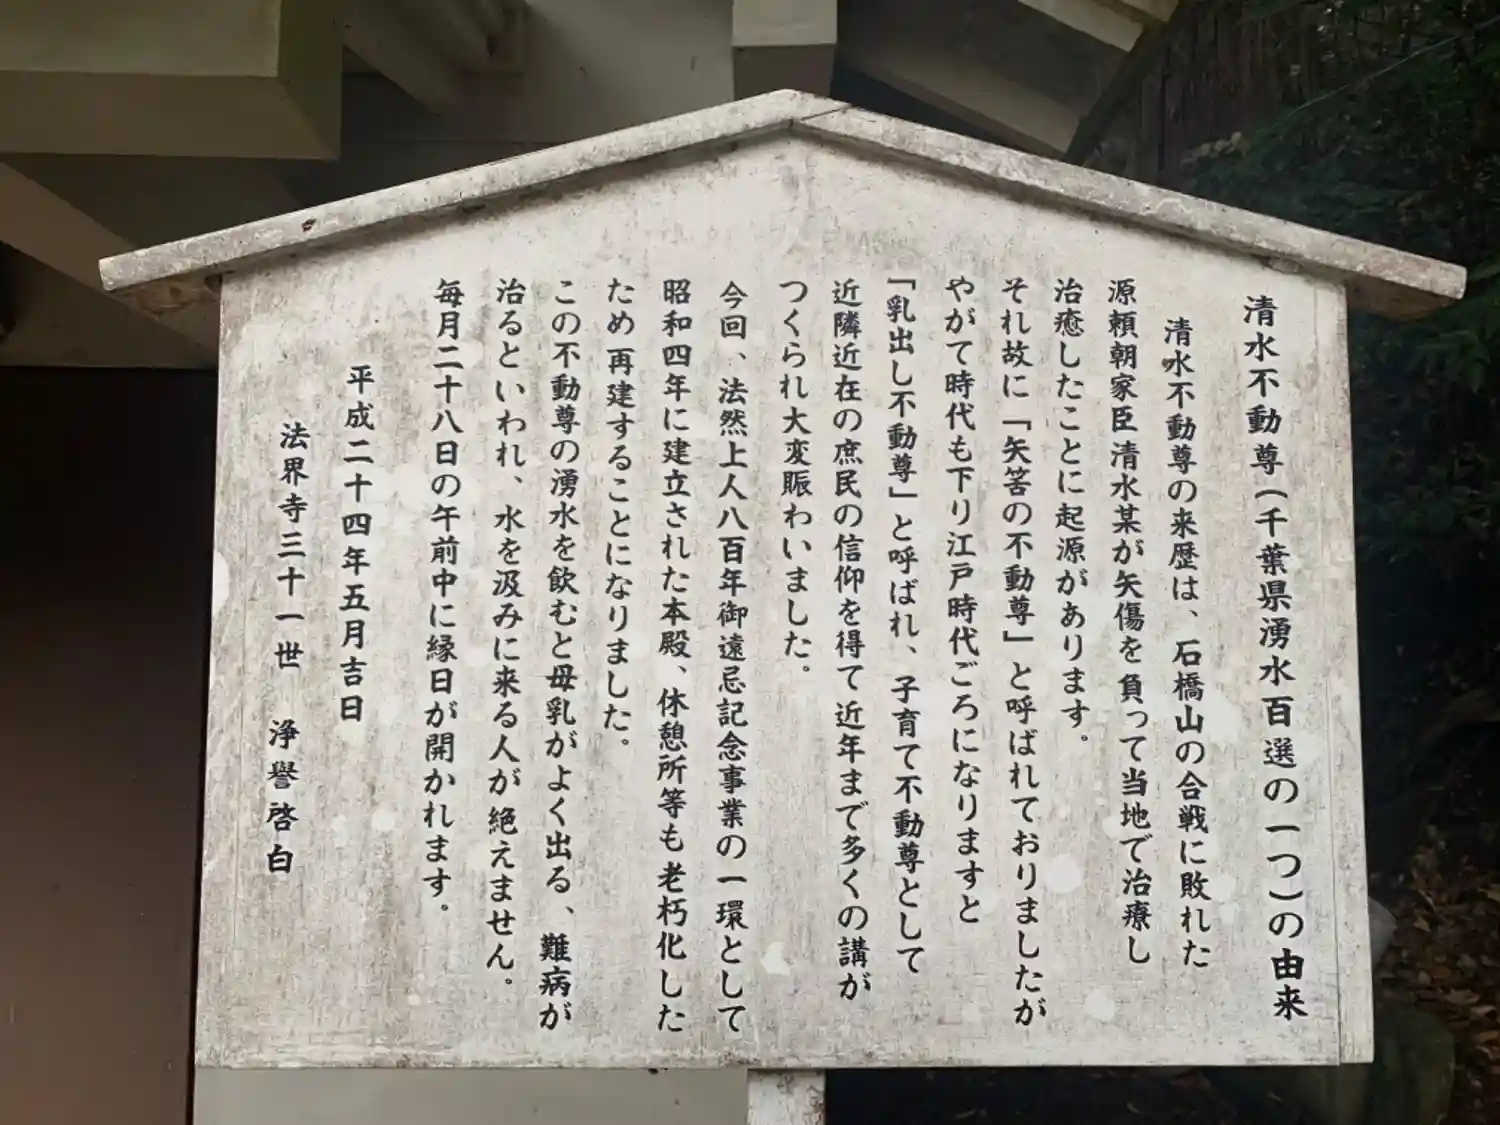 清水不動尊(千葉県湧水百選の一つ)の由来
清水不動尊の来歴は、石橋山の合戦に敗れた
源頼朝家臣清水某が矢傷を負って当地で治療し
治癒したことに起源があります。
それ故に「矢筈の不動尊」と呼ばれておりましたが
やがて時代も下り江戸時代ごろになりますと
「乳出し不動尊」と呼ばれ、子育て不動尊として
近隣近在の庶民の信仰を得て近年まで多くの講が
つくられ大変賑わいました。
今回、法然上人八百年御遠忌記念事業の一環として
昭和四年に建立された本殿、休憩所等も老朽化した
ため再建することになりました。
この不動尊の湧水を飲むと母乳がよく出る、難病が
治るといわれ、水を汲みに来る人が絶えません。
毎月二十八日の午前中に縁日が開かれます。
平成二十四年五月吉日
法界寺三十一世 浄誉啓白